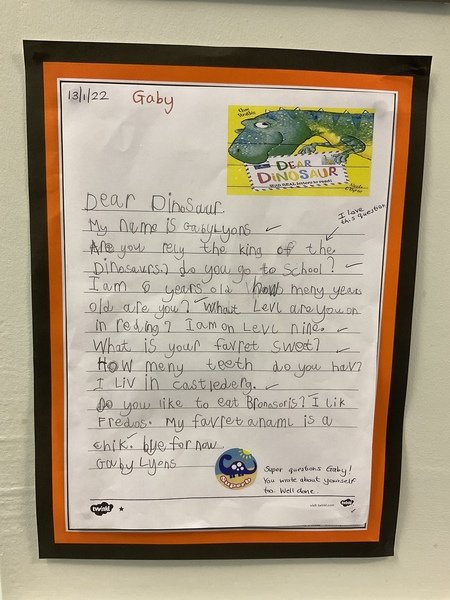 13/1/22 Gaby
DEAR
DINOSAUR
With REAL letters to read!
Dear Dinosaur
I love
this question
My name is Gaby Lyons
Are you rely the king of the
Dinosaurs? do you go to School?
I am 6 years old how meny years
old are you? What Levl are you on
in reding? I am on Levl nine.
What is your favret sweet?
How meny teeth do you hav?
I Liv in castlederg.
Do you like to eat Bronosoris? I Lik
Fredos. My favret anaml is a
chik. bye for now
Gaby Lyens
Super questions Gaby!
You wrote about yourself
too. Well done.
twinkl
visit twinkl.com
twinkl